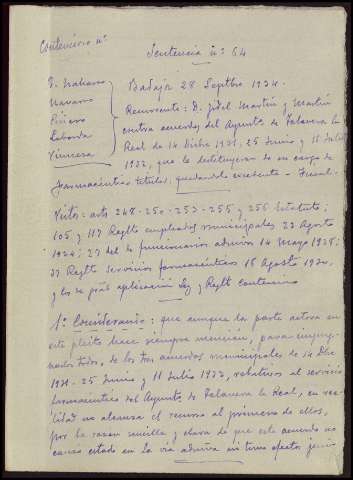 Contencioso nº
Sentencia nº 64
Navarro
Piñero
Laborda
Badajoz 28 Septbre 1934.
Recurrente: D. Fidel Martín y Martín
contra acuerdos del Ayuntº de Talavera la
Real de 14 Dicbre 1931, 25 Junio y 11 Julio
1932, que le destituyeron de su cargo de
farmacéutico titular, quedando excedente -
Vistos: arts 248-250-253-255 y 256 Estatuto;
105 y 117 Reglto empleados municipales 23 Agosto
1924; 27 del de funcionarios admvos 14 Mayo 1928;
37 Reglto servicios farmacéuticos 16 Agosto 1930,
y los de gral aplicación Ley y Reglto contencioso
1º Considerando: que aunque la parte actora en
este pleito hace siempre mención, para impug-
narlos todos, de los tres acuerdos municipales de 14 Dbre
1931 - 25 Junio y 11 Julio 1932, relativos al servicio
farmacéutico del Ayuntº de Talavera la Real, en rea-
lidad no alcanza el recurso al primero de ellos,
por la razón sencilla y clara de que este acuerdo no
causó estado en la vía admtva ni tuvo efectos